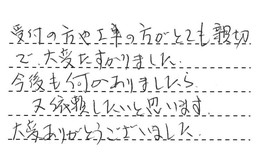 受付の方や工事の方がとても親切
で、大変たすかりました。
今後も何かありましたら
又依頼したいと思います
大変ありがとうございました。